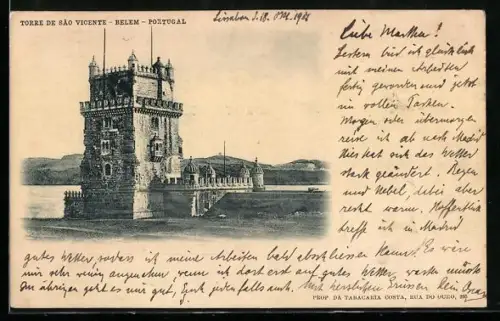 TORRE DE SÃO VICENTE - BELEM - PORTUGAL
Lissabon d. 18.
Liebe Martha!
Gestern bin ich glücklich
mit meinen Arbeiten
fertig geworden und jetzt
im vollen Packen.
Morgen oder übermorgen
reise ich ab nach Madrid
Hier hat sich das Wetter
stark geändert. Regen
und Nebel, dabei aber
recht warm. Hoffentlich
treffe ich in Madrid
gutes Wetter, sodass ich meine Arbeiten bald abschliessen kann. Es wäre
mir sehr wenig angenehm, wenn ich dort erst auf gutes Wetter warten müsste
Im übrigen geht es mir gut, jedenfalls auch. Mit herzlichen Grüssen Dein
PROP. DA TABACARIA COSTA, RUA DO OURO, 295